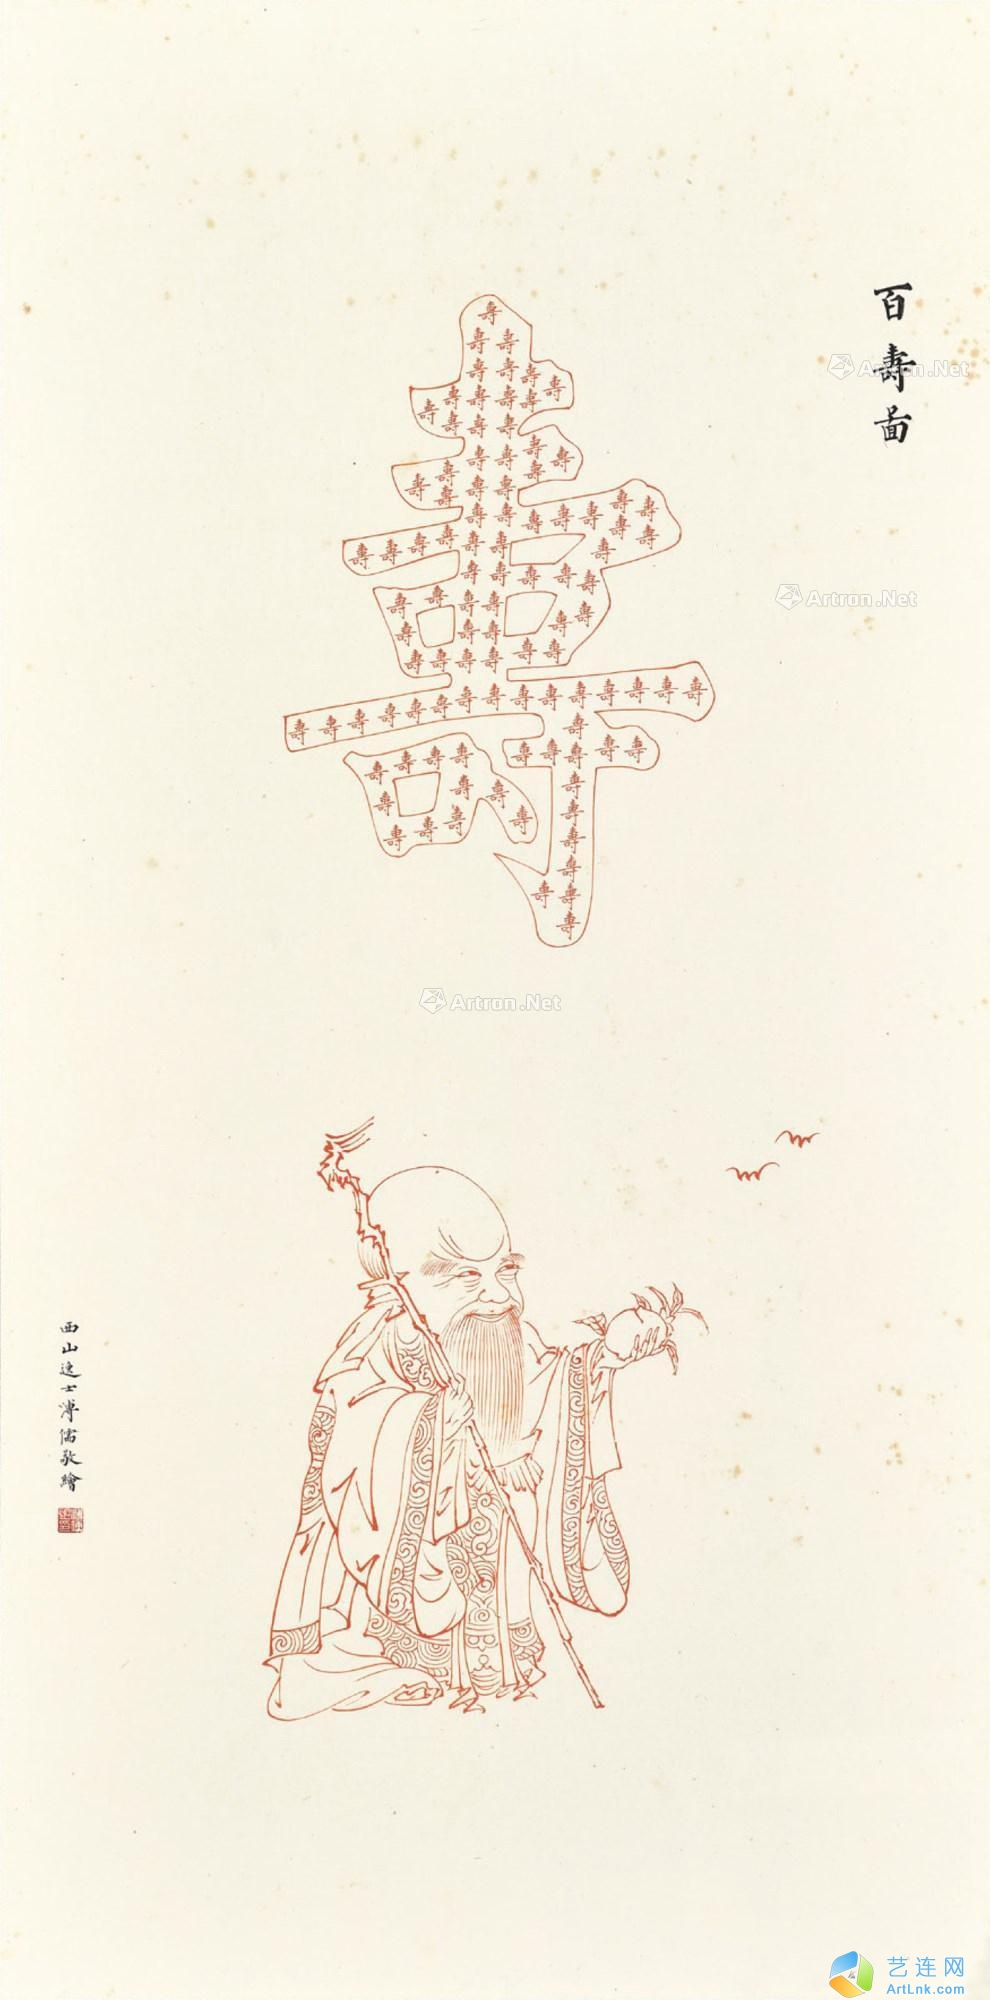 百壽啚
壽
西山逸士溥儒敬繪
Artron.Net
Artron.Net
Artron.Net
艺连网
ArtLnk.com